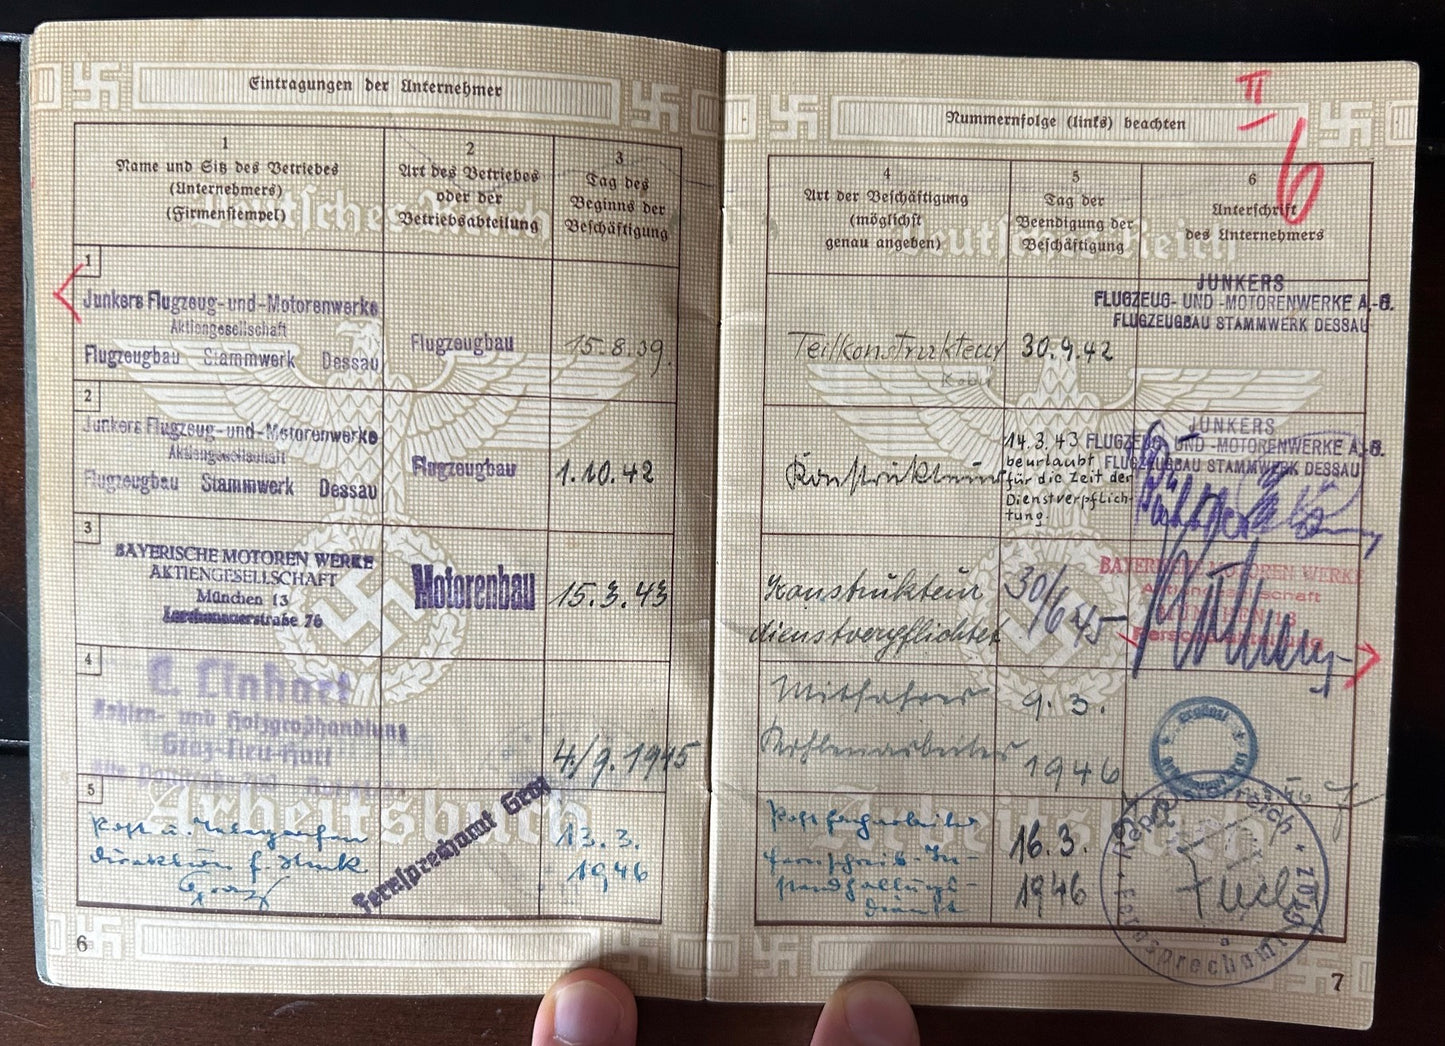 Eintragungen der Unternehmer
1
Name und Sitz des Betriebes
(Unternehmers)
(Firmenstempel)
2
Art des Betriebes
oder der
Betriebsabteilung
3
Tag des
Beginns der
Beschäftigung
1
Junkers Flugzeug-und-Motorenwerke
Aktiengesellschaft
Flugzeugbau Stammwerk Dessau
Flugzeugbau
15.8.39.
2
Junkers Flugzeug-und-Motorenwerke
Aktiengesellschaft
Flugzeugbau Stammwerk Dessau
Flugzeugbau
1.10.42
3
BAYERISCHE MOTOREN WERKE
AKTIENGESELLSCHAFT
München 13
Lerchenauerstraße 76
Motorenbau
15.3.43
4
Linhart
Kohlen- und Holzgroßhandlung
Graz-
4./9. 1945
5
Post u. Telegrafen
direktion f. Stmk
Graz
Fernsprechamt Graz
13.3.
1946
Deutsches Reich
Arbeitsbuch
6
II
6
Nummernfolge (links) beachten
4
Art der Beschäftigung
(möglichst
genau angeben)
5
Tag der
Beendigung der
Beschäftigung
6
Unterschrift
des Unternehmers
Teilkonstrukteur
30.9.42
JUNKERS
FLUGZEUG- UND -MOTORENWERKE A.-G.
FLUGZEUGBAU STAMMWERK DESSAU
Konstrukteur
14.3.43
beurlaubt
für die Zeit der
Dienstverpflich-
tung.
JUNKERS
FLUGZEUG- UND -MOTORENWERKE A.-G.
FLUGZEUGBAU STAMMWERK DESSAU
Konstrukteur
dienstverpflichtet
30/6 45
BAYERISCHE MOTOREN WERKE
Aktiengesellschaft
MÜNCHEN 13
Mitfahrer
Kohlenarbeiter
9.3.
1946
Postfacharbeiter
Fernschreib-In-
standhaltungs-
dienst
16.3.
1946
Republik Österreich
Fernsprechamt Graz
Deutsches Reich
Arbeitsbuch
7